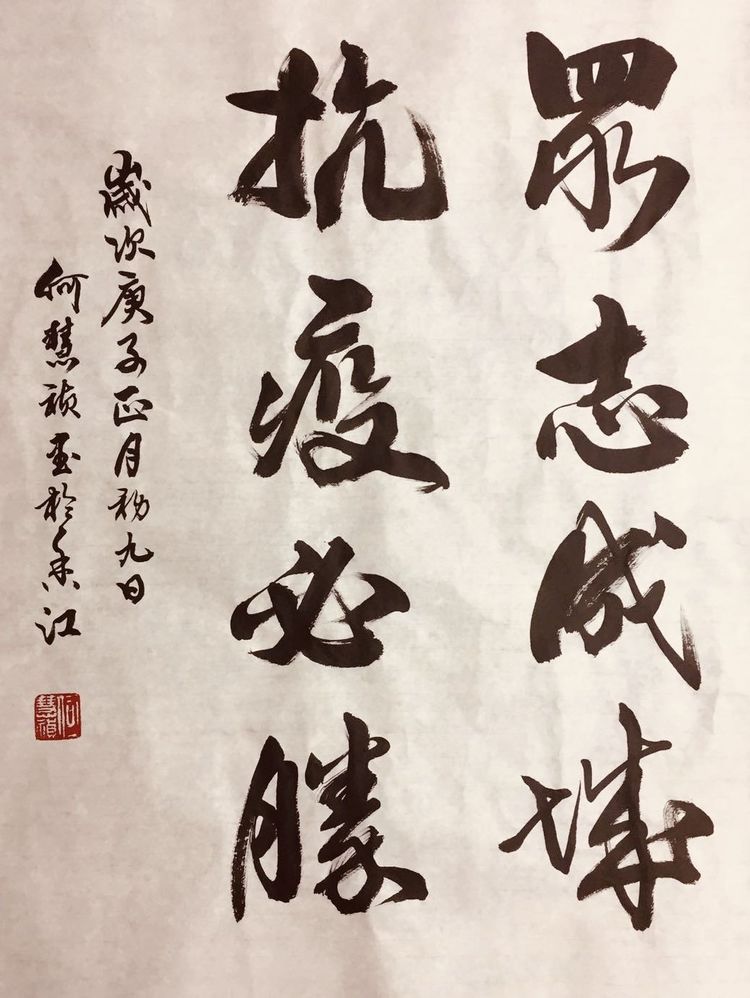 眾志成城
抗疫必勝
歲次庚子正月初九日
何慧禎書於香江
何慧禎